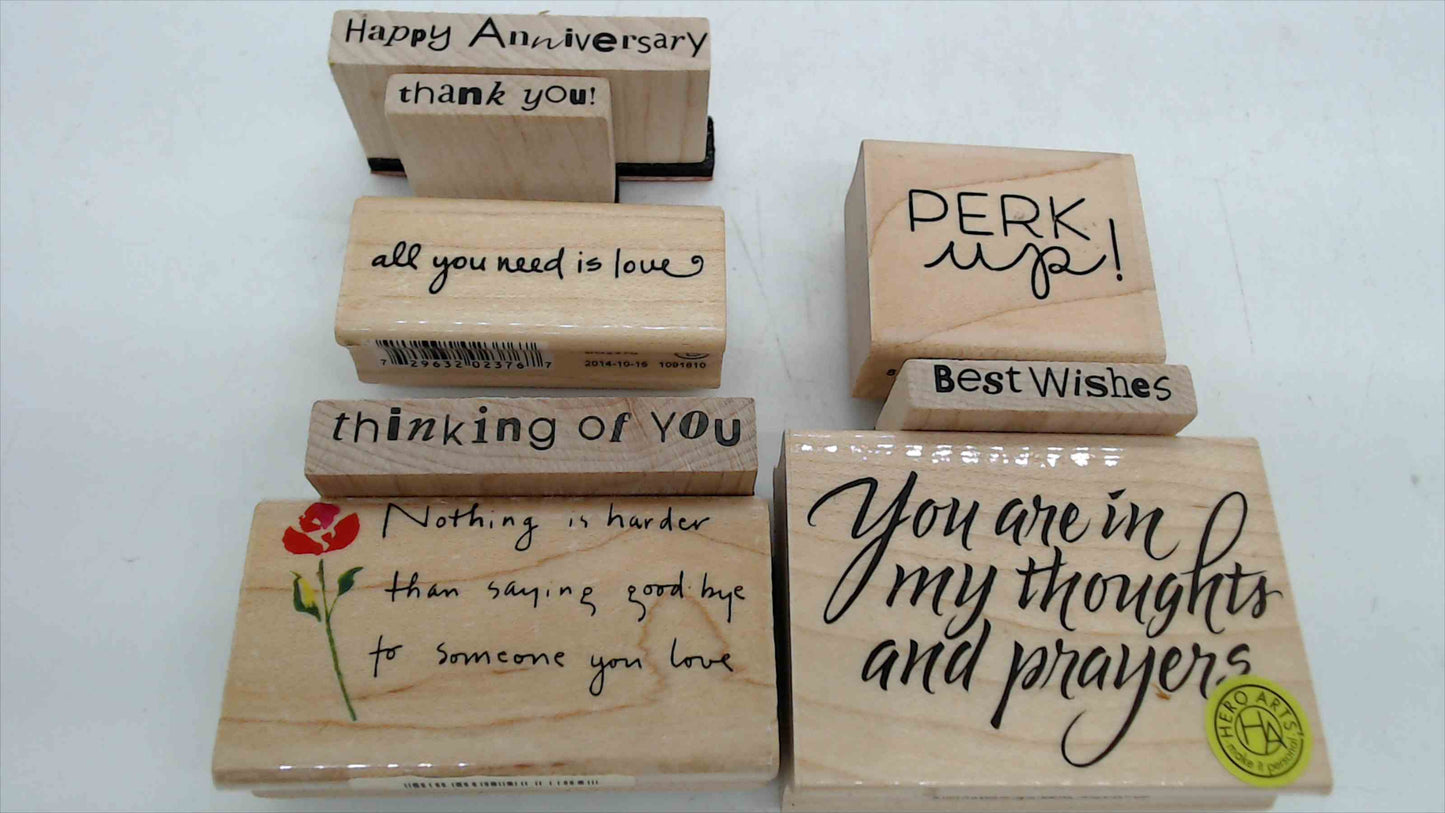 Happy Anniversary
thank you!
all you need is love
7 29632 02376 7
2014-10-15 1091610
thinking of you
Nothing is harder
than saying good·bye
to someone you love
PERK
up!
Best Wishes
You are in
my thoughts
and prayers
HERO ARTS
HA
make it personal